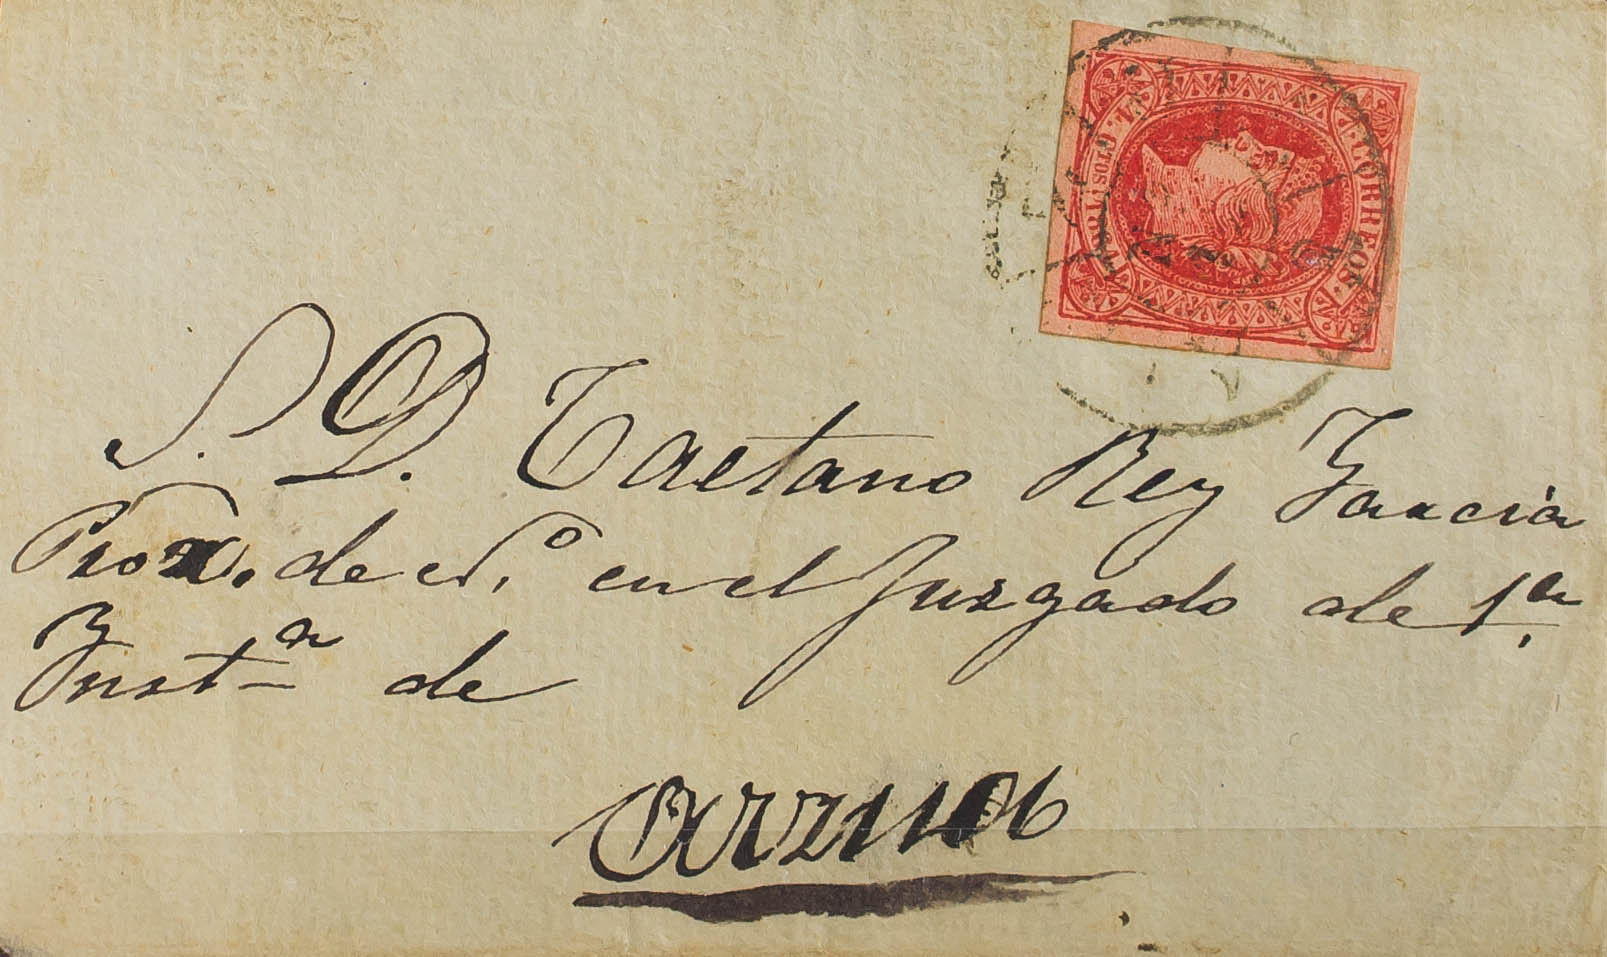 CORREOS.
4 CTOS
S. D. Caetano Rey Garcia
Procr. de N.º en el Juzgado de 1.ª
Instª de
Arzua